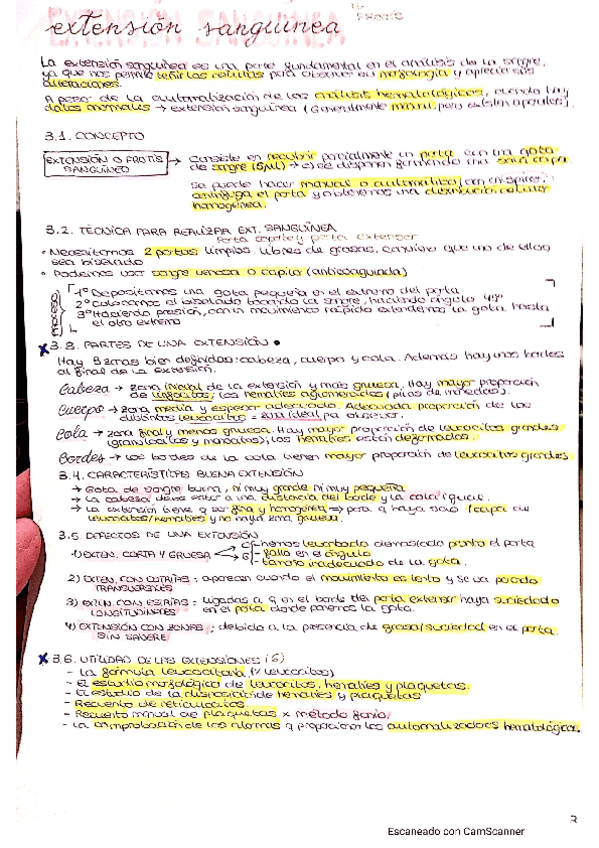 FROTIS
extensión sanguínea
La extensión sanguínea es una parte fundamental en el análisis de la sangre,
ya que nos permite teñir las células para observar su morfología y apreciar sus
alteraciones.
A pesar de la automatización de los análisis hematológicos, cuando hay
datos anormales → extensión sanguínea (Generalmente manual, pero existen aparatos).
3.1. CONCEPTO
EXTENSIÓN O FROTIS SANGUÍNEO → Consiste en recubrir parcialmente un porta con una gota
de sangre (5µl) → se disponen formando una sola capa.
Se puede hacer manual o automática
centrifuga el porta y obtenemos una distribución celular
homogénea.
3.2. TÉCNICA PARA REALIZAR EXT. SANGUÍNEA
porta soporte y porta extensor
• Necesitamos 2 portas limpios, libres de grasas, conviene que uno de ellos
sea biselado
• Podemos usar sangre venosa o capilar (anticoagulada)
PROCESO
1º Depositamos una gota pequeña en el extremo del porta
2º Colocamos el biselado tocando la sangre, haciendo ángulo 45º
3º Haciendo presión, con un movimiento rápido extendemos la gota hasta
el otro extremo
3.3. PARTES DE UNA EXTENSIÓN •
Hay 3 zonas bien definidas: cabeza, cuerpo y cola. Además hay unos bordes
al final de la extensión.
Cabeza → Zona inicial de la extensión y más gruesa. Hay mayor proporción
de linfocitos, los hematíes aglomerados (pilas de monedas).
Cuerpo → Zona media y espesor adecuado. Adecuada proporción de los
distintos leucocitos = zona ideal pa observar.
Cola → Zona final y menos gruesa. Hay mayor proporción de leucocitos grandes
(granulocitos y monocitos), los hematíes están deformados.
Bordes → los bordes de la cola tienen mayor proporción de leucocitos grandes
3.4. CARACTERÍSTICAS BUENA EXTENSIÓN
→ Gota de sangre buena, ni muy grande ni muy pequeña
→ La cabeza debe estar a una distancia del borde y la cola igual.
→ La extensión tiene q ser fina y homogénea → para q haya solo 1 capa de
leucocitos/hematíes y no haya zona gruesa.
3.5. DEFECTOS DE UNA EXTENSIÓN
1) EXTEN. CORTA Y GRUESA
hemos levantado demasiado pronto el porta
- fallo en el ángulo
- tamaño inadecuado de la gota.
2) EXTEN. CON ESTRÍAS TRANSVERSALES : aparecen cuando el movimiento es lento y se va parando
3) EXTEN. CON ESTRÍAS LONGITUDINALES : ligadas a q en el borde de porta extensor haya suciedad
o en el porta donde ponemos la gota.
4) EXTENSIÓN CON ZONAS SIN SANGRE : debido a la presencia de grasa/suciedad en el porta.
3.6. UTILIDAD DE LAS EXTENSIONES (6)
- La fórmula leucocitaria (% leucocitos)
- El estudio morfológico de leucocitos, hematíes y plaquetas.
- El estudio de la disposición de hematíes y plaquetas
- Recuento de reticulocitos
- Recuento manual de plaquetas x método fonio.
- La comprobación de las alarmas q proporcionan los automatizadores hematológicos.
3
Escaneado con CamScanner